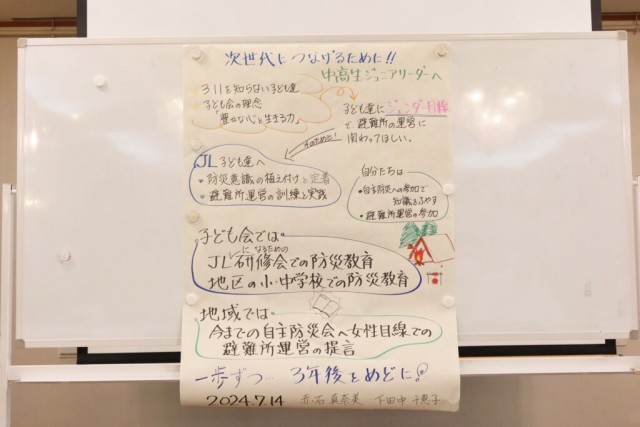 次世代につなげるために!!
中高生ジュニアリーダーへ
311を知らない子ども達
子ども会の理念
「豊かな心」と「生きる力」
子ども達にジェンダー目線
で避難所の運営に
関わってほしい。
そのために!
JL 子ども達へ
・防災意識の植え付けと定着
・避難所運営の訓練と実践
自分たちは
・自主防災への参加で
知識をふやす
・避難所運営の参加
子ども会では
になるための
JL研修会での防災教育
地区の小・中学校での防災教育
地域では
今までの自主防災会へ女性目線での
避難所運営の提言
一歩ずつ… 3年後をめどに!
2024.7.14 赤石真奈美 下田中